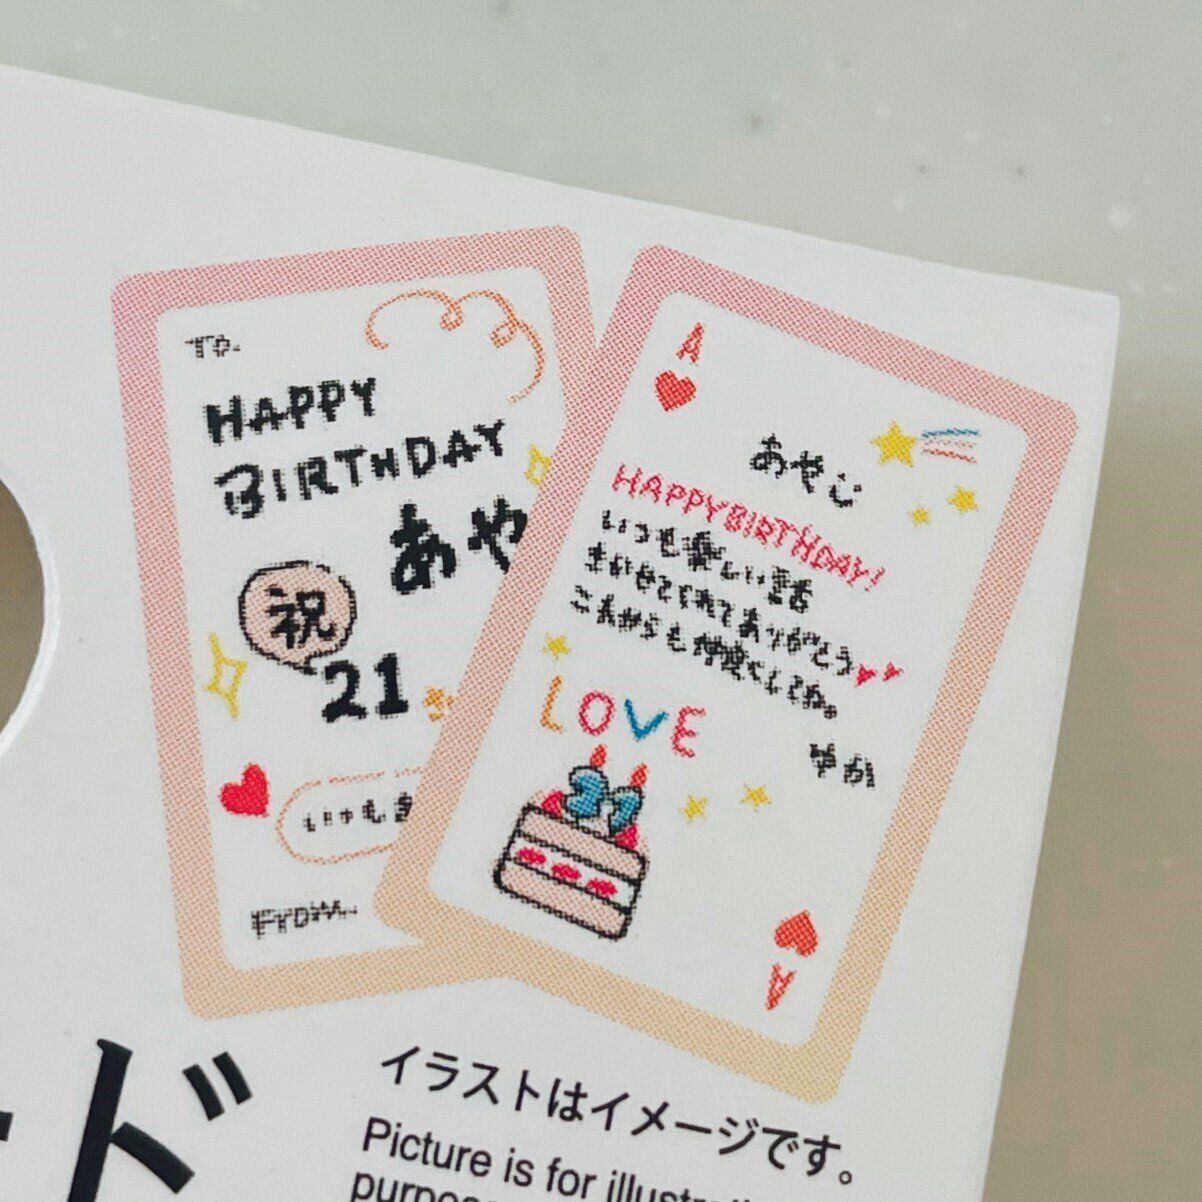 To.
HAPPY
BIRTHDAY
あや
祝
21
いつも
From.
A
あやじ
HAPPYBIRTHDAY!
いつも優しい言
きかせてくれてありがとう
これからも仲良くしてね。
LOVE
21
やか
A
ード
イラストはイメージです。
Picture is for illustrati
purpos